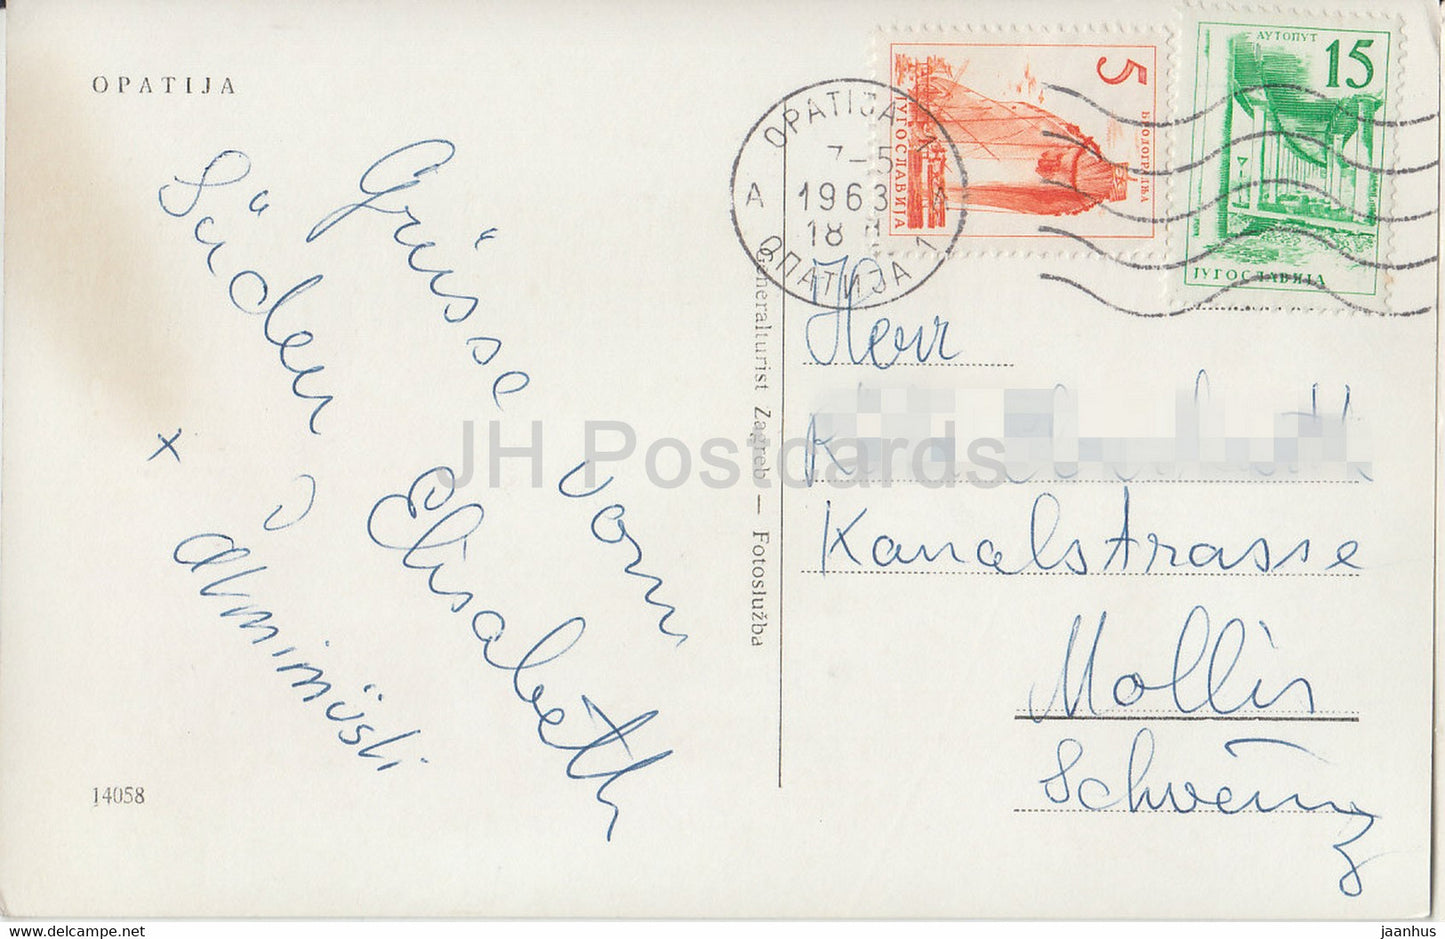 OPATIJA
Grüsse vom
Süden
Elisabeth
x
14058
Generalturist Zagreb — Fotoslužba
OPATIJA 1
7-5
1963
18
A A
ОПАТИЈА 1
5
БРОДОГРАДЊА
ЈУГОСЛАВИЈА
АУТОПУТ
15
ЈУГОСЛАВИЈА
Herr
Kanalstrasse
Mollis
Schweiz
JH Postcards
delcampe.net
jaanhus